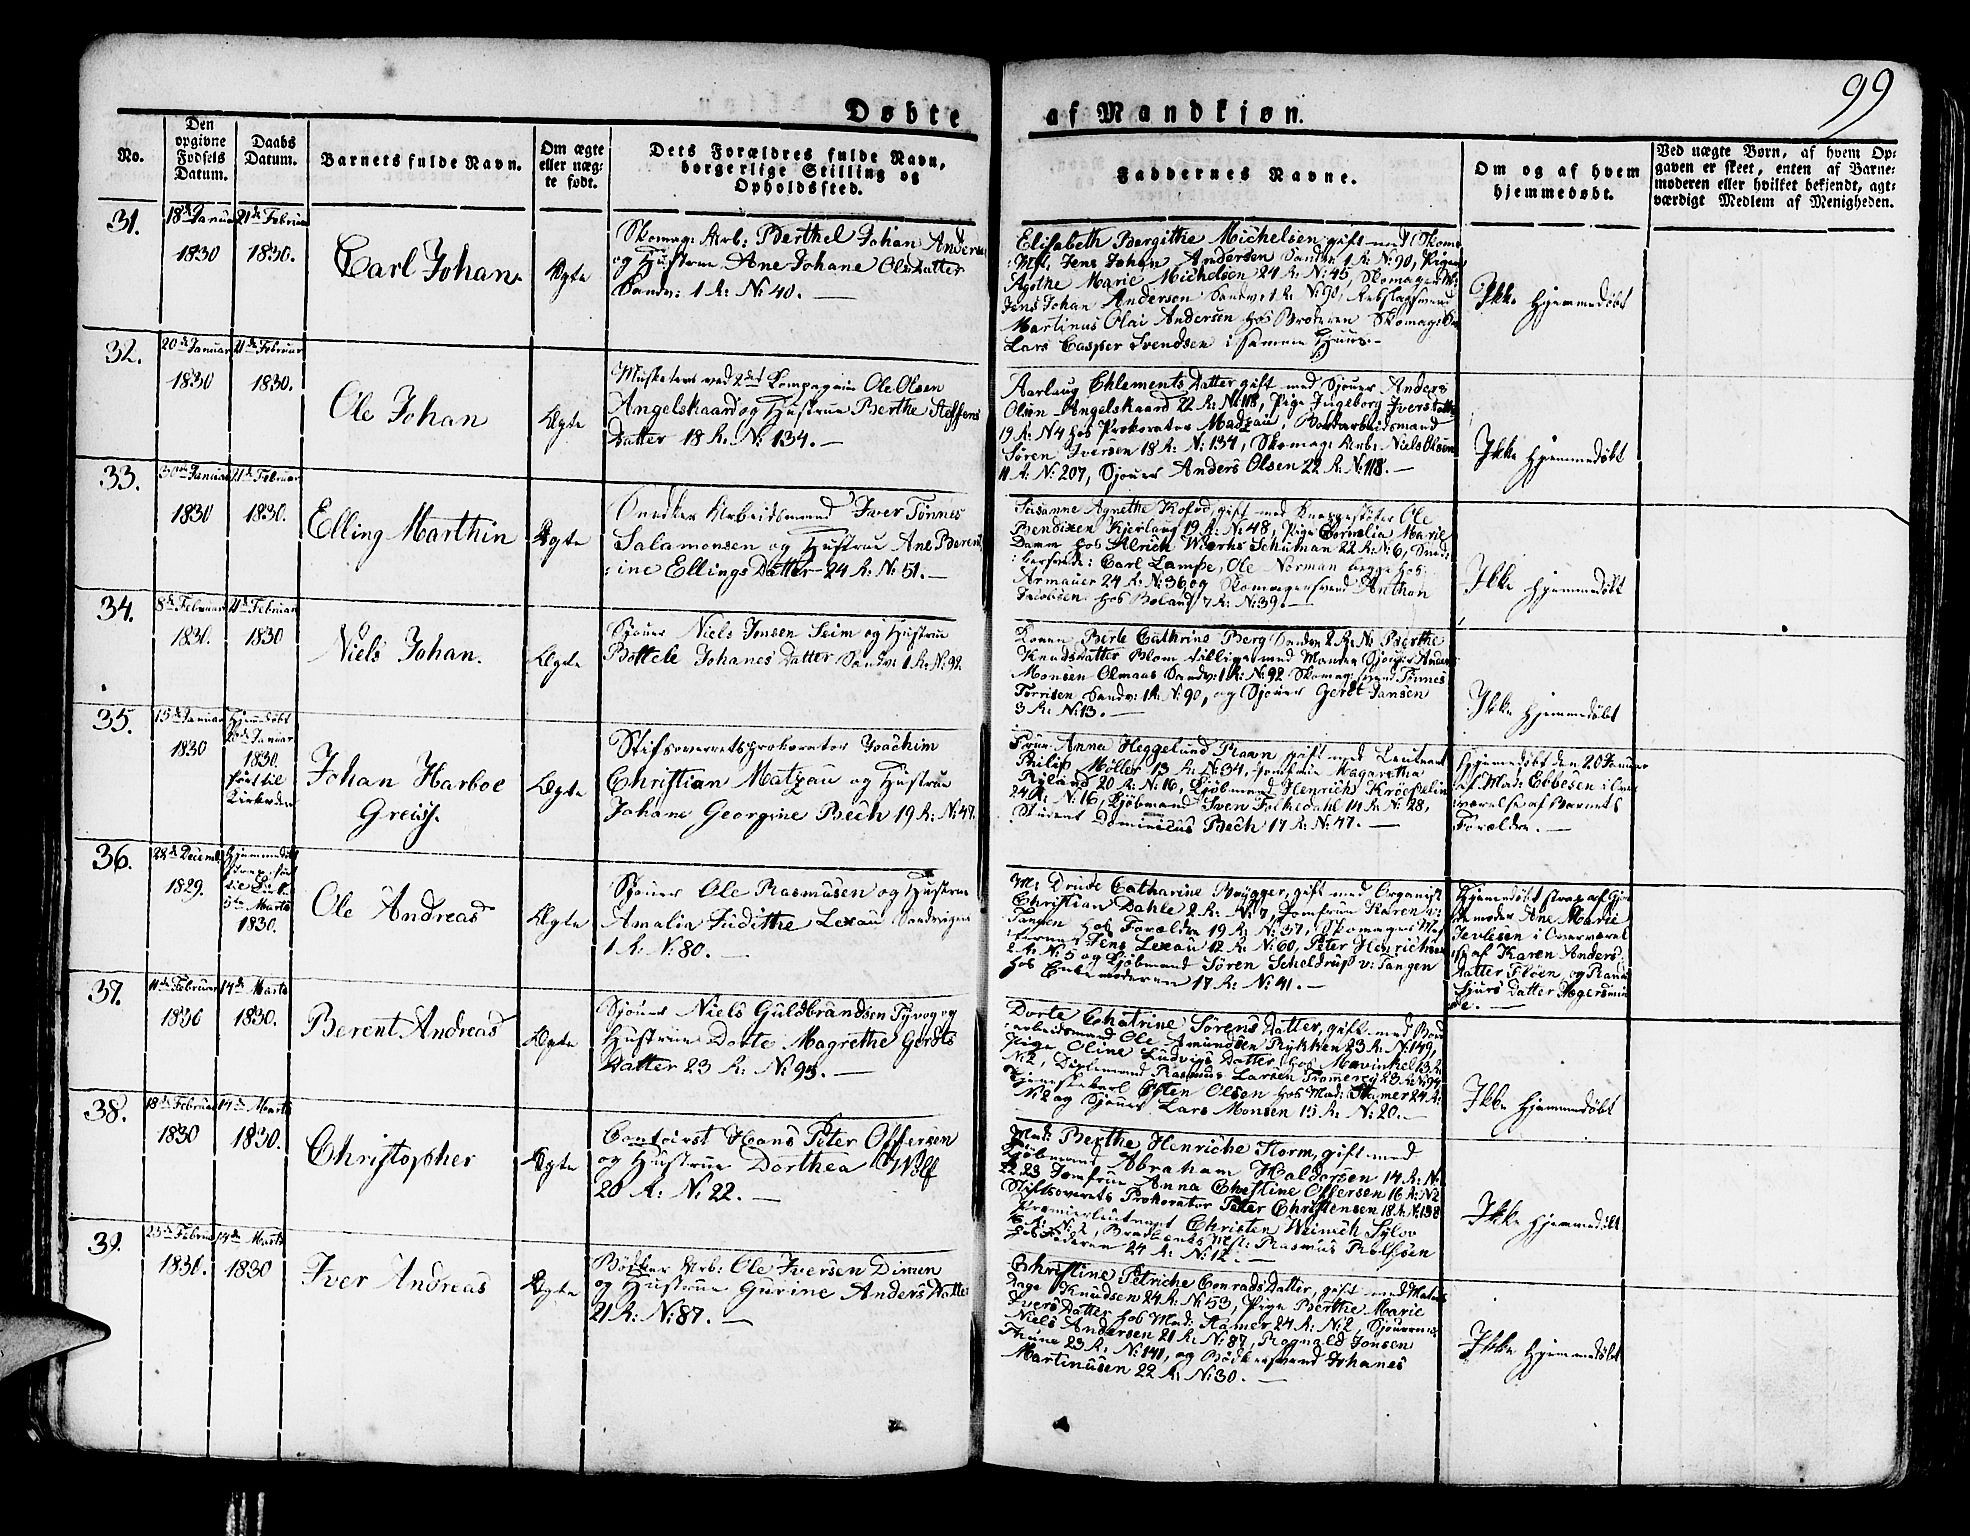 99
Døbte af Mandkjøn.
No.
Den opgivne Fødsels Datum.
Daabs Datum.
Barnets fulde Navn.
Om ægte eller uægte født.
Dets Forældres fulde Navn, borgerlige Stilling og Opholdssted.
Faddernes Navne.
Om og af hvem hjemmedøbt.
Ved uægte Børn, af hvem Op-
gaven er skeet, enten af Barne-
moderen eller hvilket bekjendt, agt-
værdigt Medlem af Menigheden.
31.
18de Januar
1830
21de Februar
1830.
Carl Johan
Ægte
Skomag: Arb: Berthel Johan Andersen
og Hustrue Ane Johane Olsdatter
Sandv: 1 R. N: 40.
Elisabeth Bergithe Michelsen gift med Skom:
Mst. Jens Johan Andersen Sandv: 1 R. N: 90, Pigen
Agethe Marie Michelsen 24 R. N: 45, Skomager M:
Jens Johan Andersen Sandv: 1 R. N: 90,
Martinus Olai Andersen hos Broderen
Lars Casper Svendsen i samme Huus.
Ikke Hjemmedøbt
32.
20de Januar
1830
21de Februar
1830.
Ole Johan
Ægte
Musketeer ved 2det Compagnie Ole Olsen
Angelskaard og Hustrue Berthe Steffens
Datter 18 R. N: 134.
Aarlaug Chlements Datter gift med Sjouer Anders
Olsen Angelskaard 22 R. N: 118, Pige Ingeborg Iversdatter
19 R. N4 hos Prokorator Madzau, Bordarbeidsmand
Søren Iversen 18 R. N: 134, Skomag: Arb: Niels Olsen
11 R. N: 207, Sjouer Anders Olsen 22 R. N: 118.
Ikke Hjemmedøbt
33.
30te Januar
1830
21de Februar
1830.
Elling Marthin
Ægte
Snedker Arbeidsmand Iver Tønnes
Salamonsen og Hustrue Ane Berent
ine Ellings Datter 24 R. N: 51.
Susanne Agnethe Kofod, gift med Ole
Bendixen Kjerlaug 19 R. N: 48, Pige Cornelia Marie
Damm hos Ulrich Wierhs Schuman 22 R. N: 6, Sned-
Carl Lampe, Ole Norman begge hos
Armauer 24 R. N: 36 og Skomagersvend Anthon
Jacobsen hos Boland 7 R. N: 39.
Ikke Hjemmedøbt
34.
8de Februar
1830.
21de Februar
1830
Niels Johan.
Ægte
Sjouer Niels Jensen Seim og Hustrue
Bottele Johanes Datter Sandv: 1 R. N: 92.
Konen Berte Cathrine Berg Sandv: 2 R. N: Berthe
Knudsdatter Blom tilligemed Manden Sjouer Anders
Monsen Olmaas Sandv: 1 R. N: 92 Skomag: svend Tønnes
Torrisen Sandv: 1 R. N: 90, og Sjouer Gerdt Jansen
3 R. N: 13.
Ikke Hjemmedøbt
35.
15de Januar
1830
Hjemdøbt
20de Januar
1830.
Johan Harboe
Greiss.
Ægte
Stiftsoverretsprokorator Joachim
Christian Matzau og Hustrue
Johane Georgine Bech 19 R. N: 47.
Frue Anna Heggelund Ravn gift med Lieutnant
Philip Møller 13 R. N: 34, Jomfrue Magaretha
Ryland 20 R. N: 16, Kjøbmand Henrich Krøepelin
24 R. N: 16, Kjøbmand Sven Folkedahl 14 R. N: 28,
Student Dominicus Bech 17 R: N: 47.
Hjemmedøbt den 20 Januar
af Mad: Ebbesen i Over-
værelse af Barnets
Forældre.
36.
28de Decemb:
1829.
Hjemmedøbt
Marts
1830.
Ole Andreas
Ægte
Sjouer Ole Rasmusen og Hustrue
Amalia Judithe Lexau Sandvigen
1 R. N: 80.
M: Drude Catharine Brygger, gift med Organist
Christian Dahle 2 R. N: 7, Jomfrue Karen v:
Tangen hos Forældre 19 R. N: 37, Skomager Mst:
Jens Lexau 12 R. N: 60, Peter Henrichsen
2 R. N: 5 og Kjøbmand Søren Scheldrup v: Tangen
hos Enkemoderen 17 R. N: 41.
Hjemmedøbt strax af Gjor-
demoder Ane Marie
Jevlesen i Overværel-
se af Karen Anders-
Datter Fløen og Randi
Sjurs Datter
37.
11te Februar
1830
14de Marts
1830.
Berent Andreas
Ægte
Sjouer Niels Guldbrandsen Tyvog og
Hustrue Dorte Magrethe Gerdts
Datter 23 R. N: 95.
Dorte Chatrine Sørens Datter, gift med Bord
arbeidsmand Ole Amundsen Rykken 23 R. N: 149,
Pige Oline Ludvigs Datter hos Mowinkel 13 R.
N: 2, Rasmus Larsen Tromerey 23 R. N: 94
Tjenestekarl Østen Olsen hos Mad: Stamer 24 R.
N: 2 og Sjouer Lars Monsen 15 R. N: 20.
Ikke Hjemmedøbt
38.
18de Februar
1830
14de Marts
1830.
Christopher
Ægte
Contoirst Hans Peter Offersen
og Hustrue Dorthea Wolf
20 R. N: 22.
Mad: Berthe Henriche Storm, gift med
Kjøbmand Abraham Haldorsen 14 R. N:
23 Jomfrue Anna Chrestine Offersen 16 R. N: 2
Stiftsoverrets Prokorator Peter Christensen 18 R. N: 138
Premierlieutnant Christen Weinich Sylov
Mst: Rasmus Rolfsen
24 R. N: 12.
Ikke Hjemmedøbt
39.
23de Februar
1830.
14de Marts
1830
Iver Andreas
Ægte
Bødker Arb: Ole Iversen Dimen
og Hustrue Gurine Anders Datter
21 R. N: 87.
Christine Petriche Conrads Datter, gift med Matros
Dage Knudsen 24 R. N: 53, Pige Berthe Marie
Ivers Datter hos Mad: Stamer 24 R. N: 2, Sjouerne
Niels Andersen 21 R. N: 87, Ragnald Jonsen
Thune 23 R. N: 141, og Bødkersvend Johanes
Martinusen 22 R. N: 30.
Ikke Hjemmedøbt